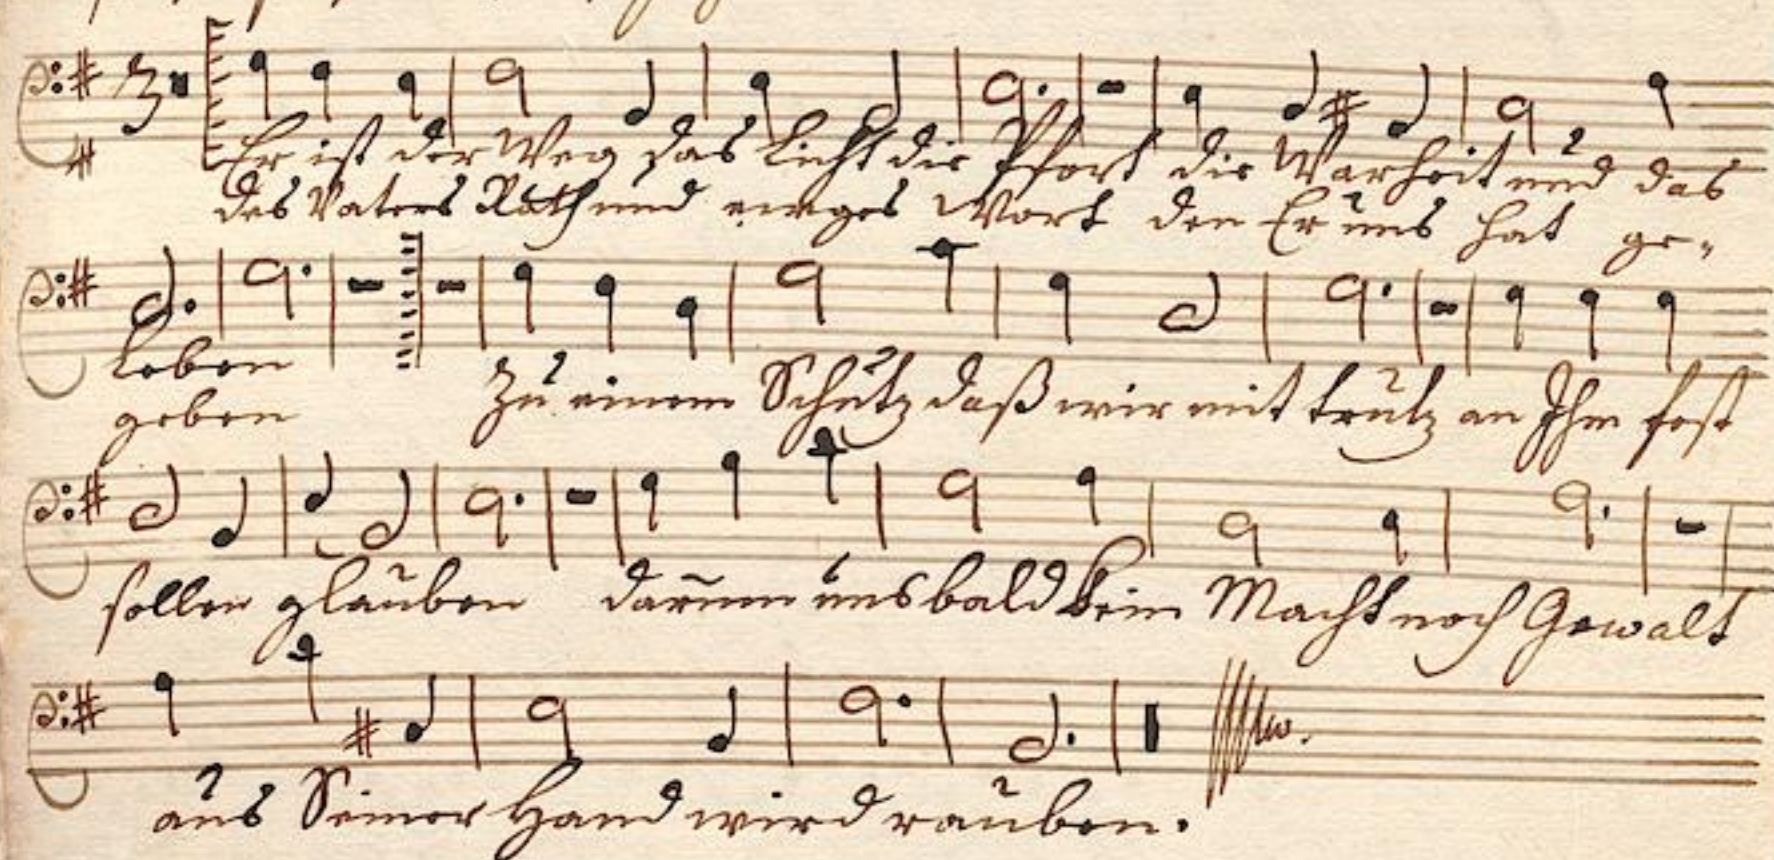 Er ist der Weg das Licht die Pfort die Warheit und das
des Vaters Rath und ewges Wort den Er uns hat ge-
Leben
geben Zu einem Schutz daß wir mit trutz an Ihm fest
sollen glauben darum uns bald kein Macht noch Gewalt
aus Seiner Hand wird rauben.